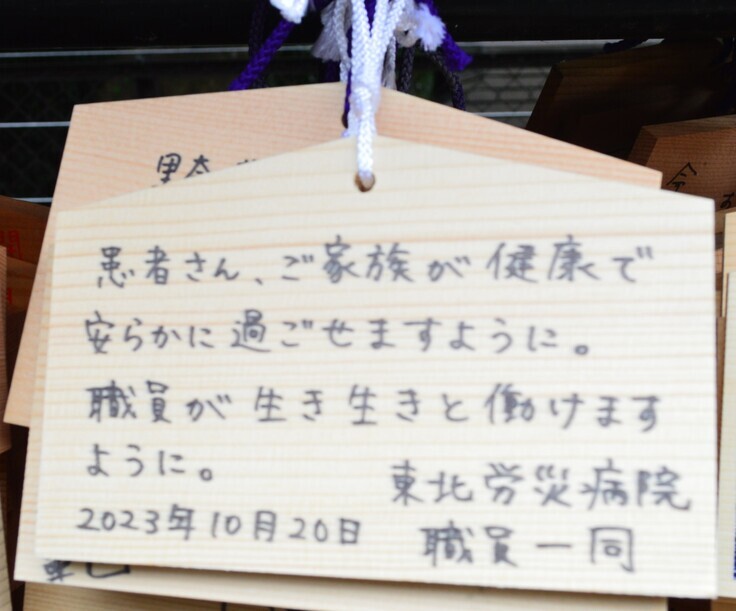 患者さん、ご家族が健康で
安らかに過ごせますように。
職員が生き生きと働けます
ように。
東北労災病院
2023年10月20日
職員一同
里奈